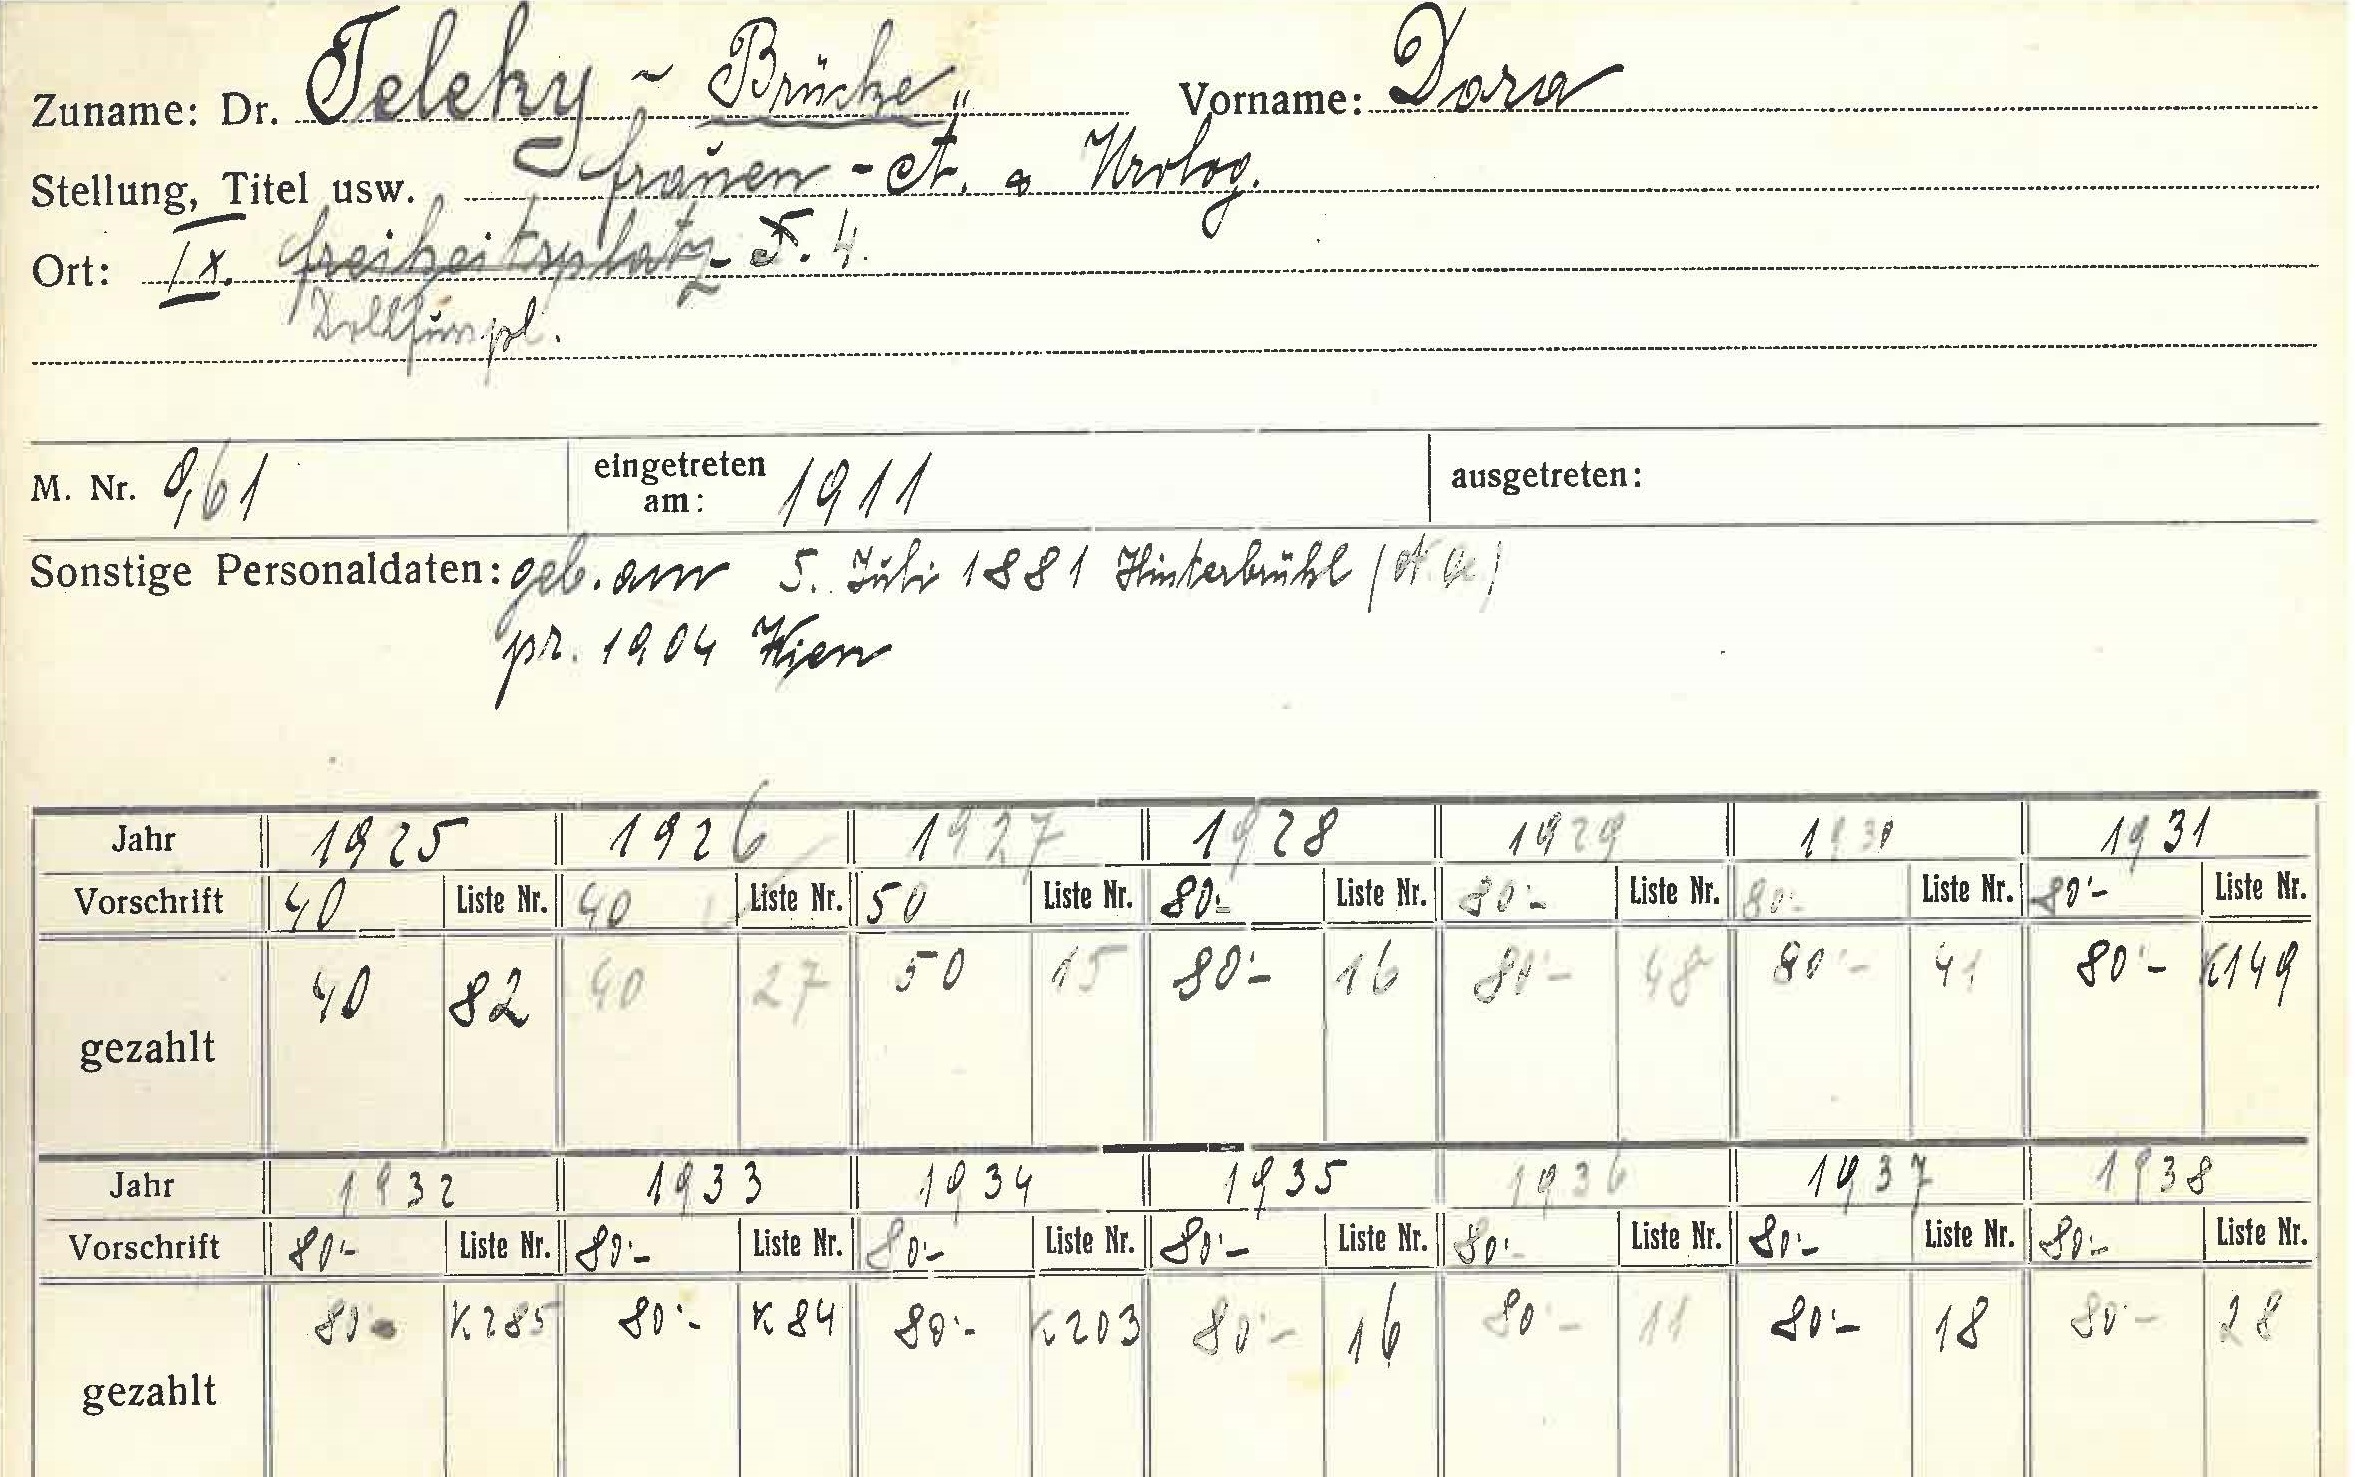 Zuname: Dr. Teleky - Brücke Vorname: Dora
Stellung, Titel usw. Frauen - A. & Urolog.
Ort: IX. Freiheitsplatz 4.
Dollfusspl.
M. Nr. 961 eingetreten am: 1911 ausgetreten:
Sonstige Personaldaten: geb. am 5. Juli 1881 Hinterbrühl
pr. 1904 Wien
Jahr 1925 1926 1927 1928 1929 1930 1931
Vorschrift 40 Liste Nr. 40 Liste Nr. 50 Liste Nr. 80.- Liste Nr. 80.- Liste Nr. 80.- Liste Nr. 80.- Liste Nr.
gezahlt 40 82 40 27 50 15 80.- 16 80.- 48 80.- 41 80.- K149
Jahr 1932 1933 1934 1935 1936 1937 1938
Vorschrift 80.- Liste Nr. 80.- Liste Nr. 80.- Liste Nr. 80.- Liste Nr. 80.- Liste Nr. 80.- Liste Nr. 80.- Liste Nr.
gezahlt 80.- K285 80.- K84 80.- K203 80.- 16 80.- 11 80.- 18 80.- 28